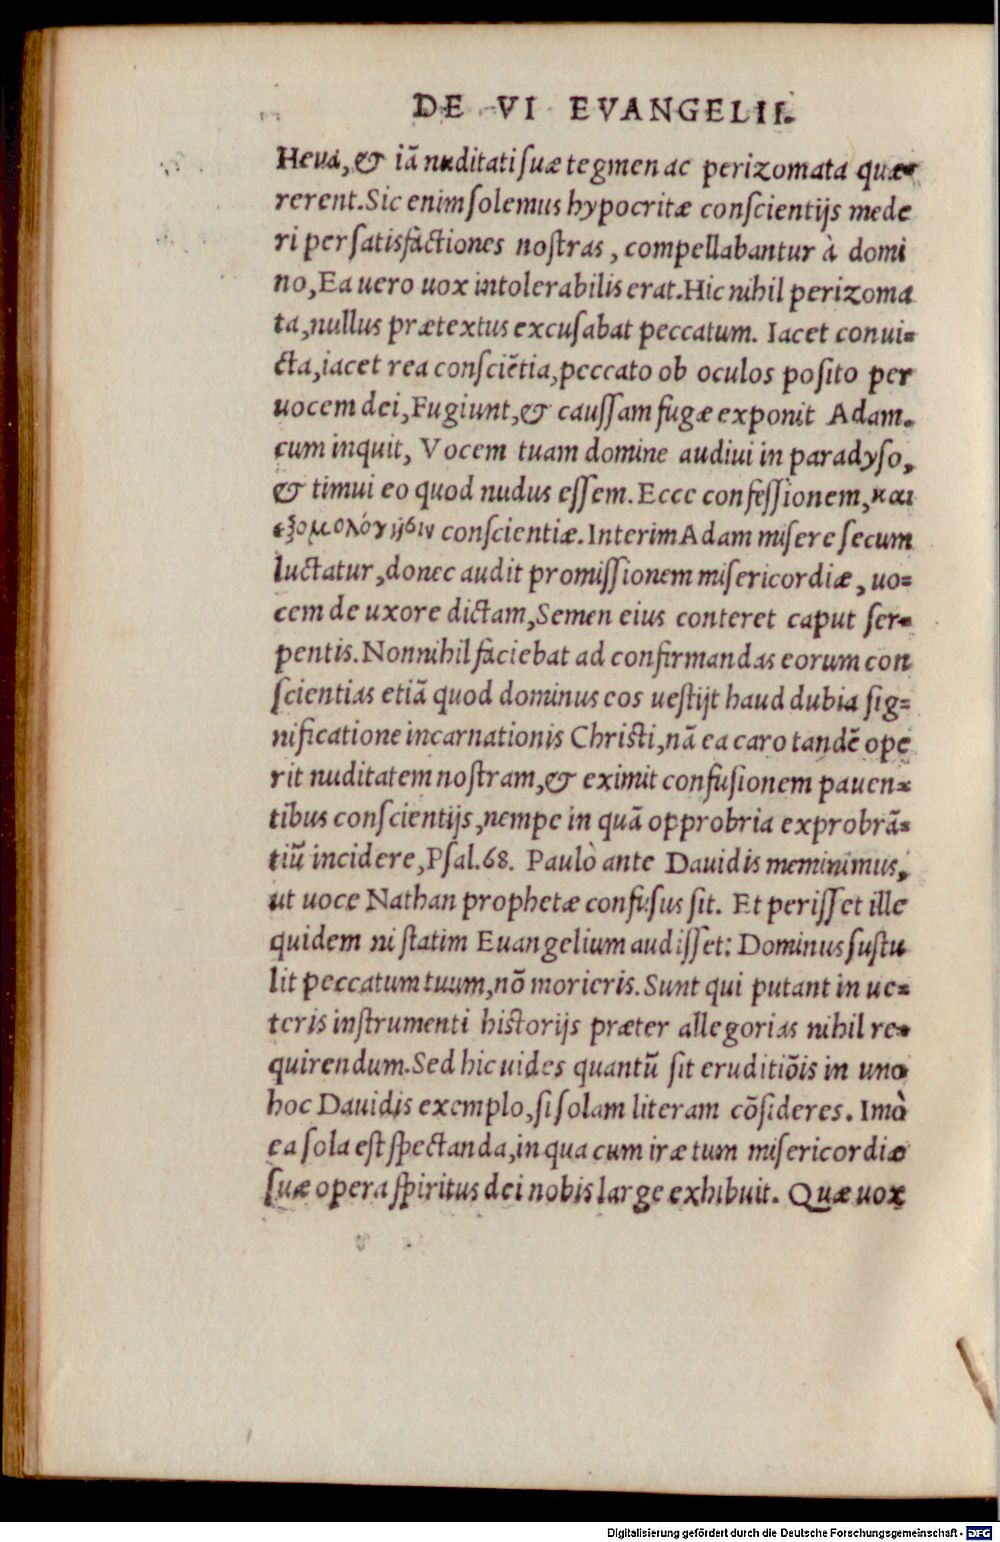 DE VI EVANGELII.
Heua, & iā nuditati suæ tegmen ac perizomata quæ=
rerent. Sic enim solemus hypocritæ conscientijs mede
ri per satisfactiones nostras, compellabantur à domi
no, Ea uero uox intolerabilis erat. Hic nihil perizoma
ta, nullus prætextus excusabat peccatum. Iacet conui=
cta, iacet rea consciētia, peccato ob oculos posito per
uocem dei, Fugiunt, & caussam fugæ exponit Adam.
cum inquit, Vocem tuam domine audiui in paradyso,
& timui eo quod nudus essem. Ecce confessionem, και
εξομολόγησιν conscientiæ. Interim Adam misere secum
luctatur, donec audit promissionem misericordiæ, uo=
cem de uxore dictam, Semen eius conteret caput ser=
pentis. Nonnihil faciebat ad confirmandas eorum con
scientias etiā quod dominus eos uestijt haud dubia sig=
nificatione incarnationis Christi, nā ea caro tandē ope
rit nuditatem nostram, & eximit confusionem pauen=
tibus conscientijs, nempe in quā opprobria exprobrā=
tiū incidere, Psal. 68. Paulò ante Dauidis meminimus,
ut uoce Nathan prophetæ confusus sit. Et perisset ille
quidem ni statim Euangelium audisset: Dominus sustu
lit peccatum tuum, nō morieris. Sunt qui putant in ue=
teris instrumenti historijs præter allegorias nihil re=
quirendum. Sed hic uides quantū sit eruditiōis in uno
hoc Dauidis exemplo, si solam literam cōsideres. Imò
ea sola est spectanda, in qua cum iræ tum misericordiæ
suæ opera spiritus dei nobis large exhibuit. Quæ uox
Digitalisierung gefördert durch die Deutsche Forschungsgemeinschaft - DFG